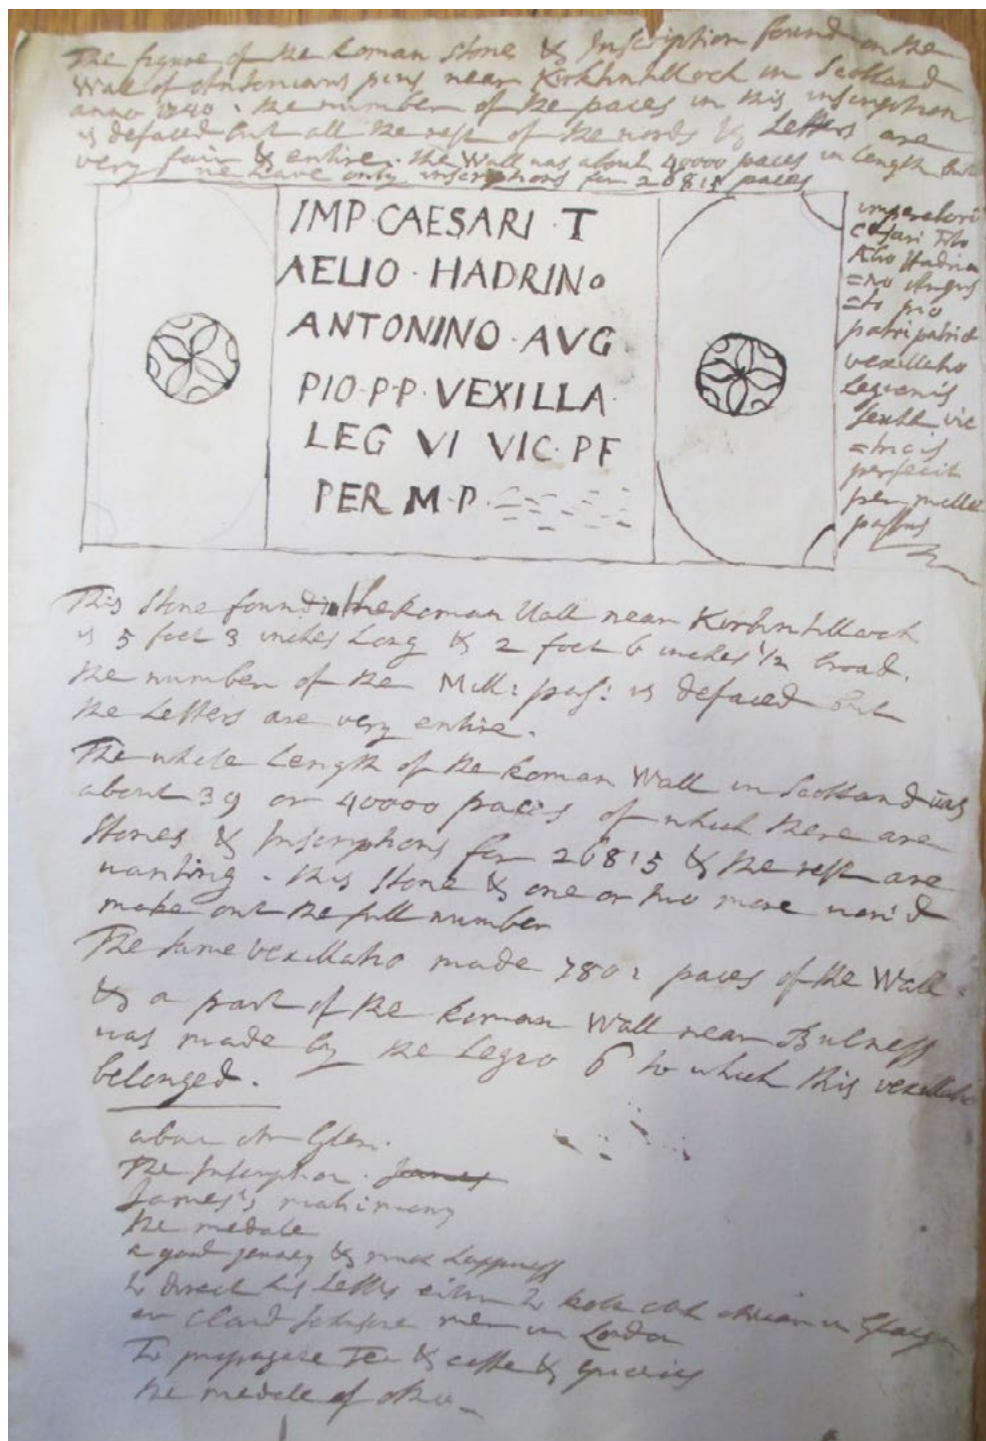 The figure of the Roman Stone & Inscription found on the
Wall of Antoninus pius near Kirkintilloch in Scotland
anno 1740. the number of the paces in this inscription
is defaced but all the rest of the words & Letters are
very fair & entire. the Wall was about 40000 paces in length but
we have only inscriptions for 26815 paces
IMP·CAESARI·T
AELIO·HADRINo
ANTONINO·AVG
PIO·P·P·VEXILLA·
LEG VI VIC·PF
PER M·P·
imperatori
Cesari Tito
Aelio Hadria
=no Augus
=to pio
patri patriae
vexillatio
Legionis
Sextae vic
=tricis
perfecit
per mille
passus
This Stone found in the Roman Wall near Kirkintilloch
is 5 foot 3 inches Long & 2 foot 6 inches 1/2 broad.
the number of the Mill: pas: is defaced but
the Letters are very entire.
The whole Length of the Roman Wall in Scotland was
about 39 or 40000 paces of which there are
Stones & Inscriptions for 26815 & the rest are
wanting. this Stone & one or two more wou'd
make out the full number
The same vexillatio made 7801 paces of the Wall.
& a part of the Roman Wall near Bulness
was made by the Legio 6 to which this vexillatio
belonged.
about Mr Glen.
The Inscription. James
James's matrimony
the medale
a good jurney & much happiness
to direct his Letters either to in Glasgow
or in London
To propagate Tea & coffe & spicries
the medale of Otho